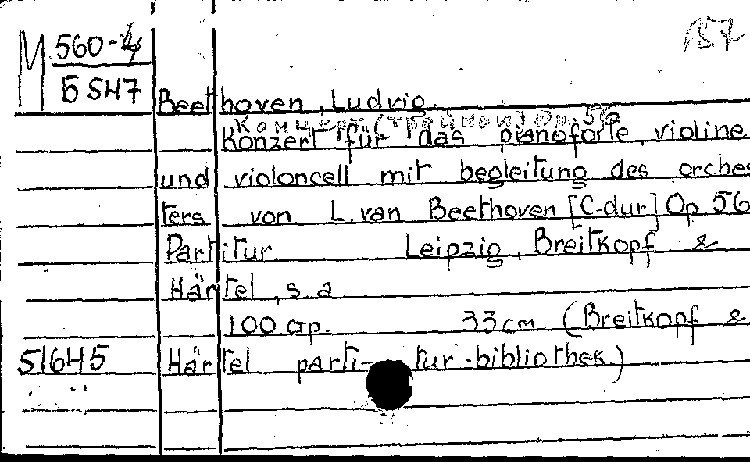 M 560-4
Б 547
157
Beethoven, Ludvig.
Концерт (тройной) Op. 56
Konzert für das pianoforte, violine
und violoncell mit begleitung des orches
ters von L. van Beethoven [C-dur] Op 56
Partitur Leipzig, Breitkopf &
Härtel, s.a
100 стр. 33 cm (Breitkopf &
51645 Härtel parti- tur-bibliothek)